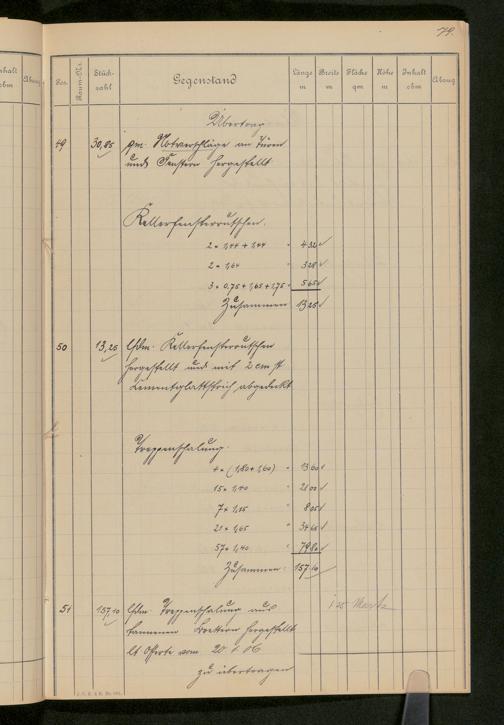 79.
Pos. Raum-Nr. Stückzahl Gegenstand Länge m Breite m Fläche qm Höhe m Inhalt cbm Abzug
Übertrag
49 30,85 qm Notverschläge an Türen
und Fenstern hergestellt
Kellerfensterrutschen.
2 × 1,44 + 1,44 = 4 32
2 × 1,64 = 3 28
3 × 0,75 + 1,65 + 1,75 = 5 65
Zusammen 13 25
50 13,25 lfdm. Kellerfensterrutschen
hergestellt und mit 2 cm st
Cementglattstrich abgedeckt
Treppenschalung.
4 × (1,80 + 1,60) = 13 60
15 × 1,40 = 21 00
7 × 1,15 = 8 05
21 × 1,65 = 34 65
57 × 1,40 = 79 80
Zusammen = 157 10
51 157,10 lfdm Treppenschalung aus
tannenen Brettern hergestellt
lt Offerte vom 20
zu übertragen